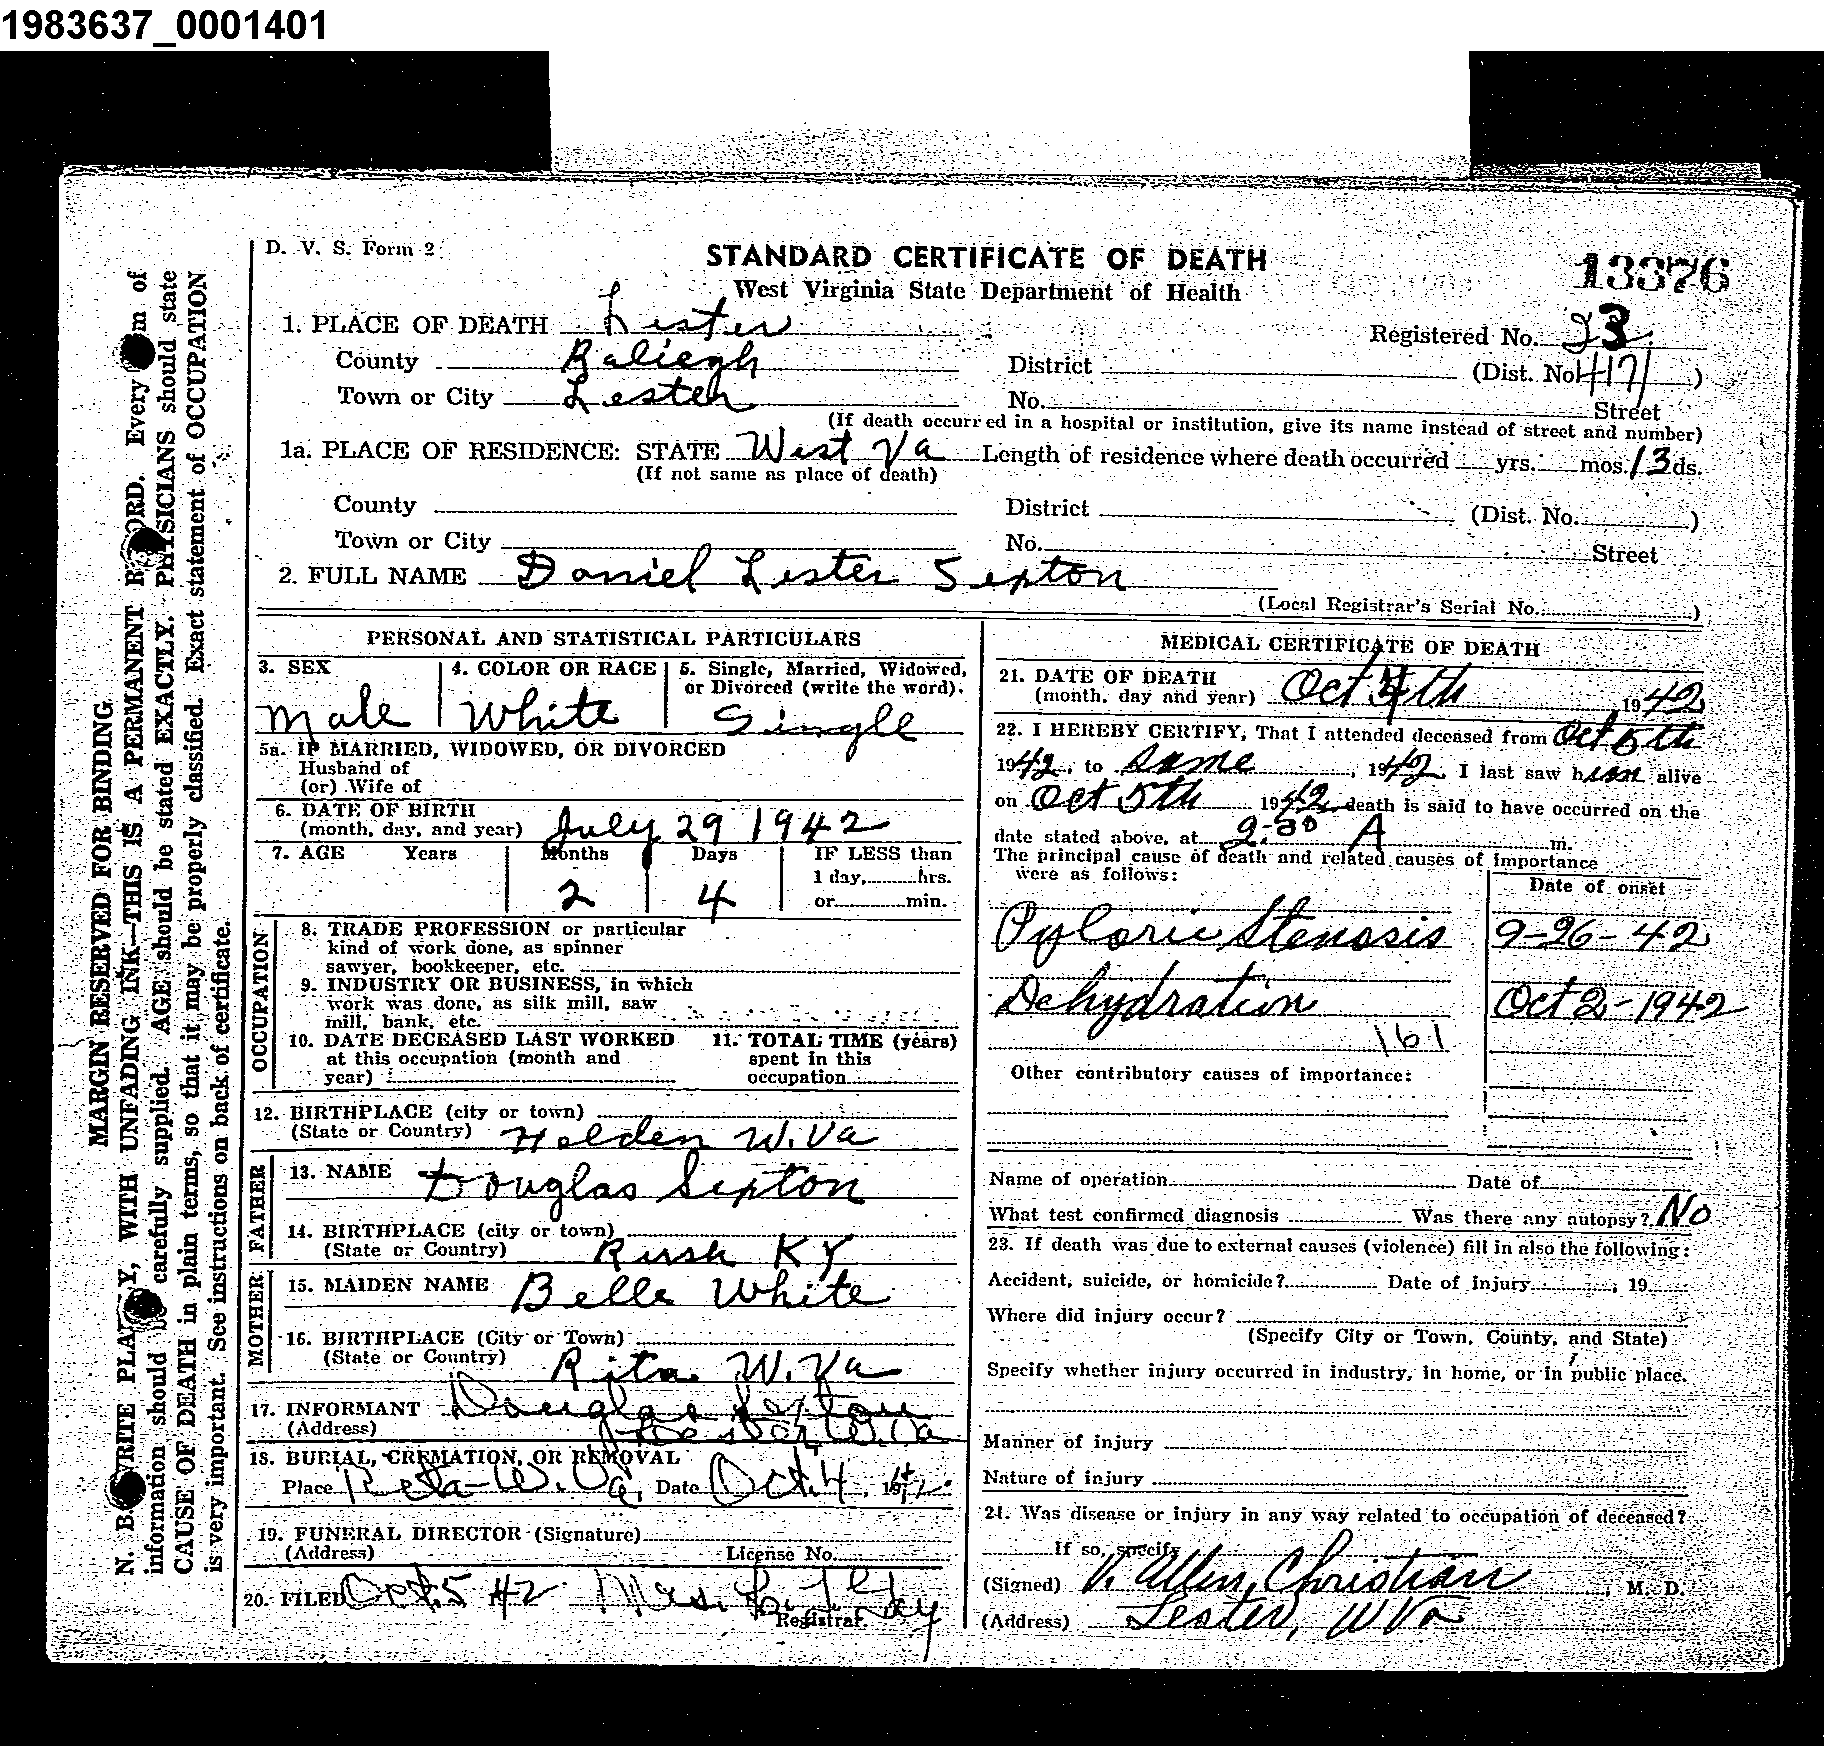 1983637_0001401
D. V. S. Form 2
STANDARD CERTIFICATE OF DEATH
13376
West Virginia State Department of Health
1. PLACE OF DEATH Lister
Registered No. 23
County Raliegh District (Dist. No. 4171)
Town or City Lester No. Street
(If death occurred in a hospital or institution, give its name instead of street and number)
1a. PLACE OF RESIDENCE: STATE West Va Length of residence where death occurred yrs. mos. 13 ds.
(If not same as place of death)
County District (Dist. No. )
Town or City No. Street
2. FULL NAME Daniel Lester Sexton
(Local Registrar's Serial No. )
PERSONAL AND STATISTICAL PARTICULARS
3. SEX 4. COLOR OR RACE 5. Single, Married, Widowed,
or Divorced (write the word).
Male White Single
5a. IF MARRIED, WIDOWED, OR DIVORCED
Husband of
(or) Wife of
6. DATE OF BIRTH
(month, day, and year) July 29 1942
7. AGE Years Months Days IF LESS than
1 day, hrs.
2 4 or min.
OCCUPATION
8. TRADE PROFESSION or particular
kind of work done, as spinner
sawyer, bookkeeper, etc.
9. INDUSTRY OR BUSINESS, in which
work was done, as silk mill, saw
mill, bank, etc.
10. DATE DECEASED LAST WORKED 11. TOTAL TIME (years)
at this occupation (month and spent in this
year) occupation
12. BIRTHPLACE (city or town)
(State or Country) Holden W.Va
FATHER
13. NAME Douglas Sexton
14. BIRTHPLACE (city or town)
(State or Country) Rush KY
MOTHER
15. MAIDEN NAME Belle White
16. BIRTHPLACE (City or Town)
(State or Country) Rita W.Va
17. INFORMANT Douglas Sexton
(Address) Lester W.Va
18. BURIAL, CREMATION, OR REMOVAL
Place Reta W.Va. Date Oct. 4, 1942.
19. FUNERAL DIRECTOR (Signature)
(Address) License No.
20. FILED Oct. 5 42 Mrs.
Registrar.
MEDICAL CERTIFICATE OF DEATH
21. DATE OF DEATH
(month, day and year) Oct 4th 1942
22. I HEREBY CERTIFY, That I attended deceased from Oct 5th
1942, to same, 1942, I last saw him alive
on Oct 5th 1942, death is said to have occurred on the
date stated above, at 2:30 A m.
The principal cause of death and related causes of importance
were as follows:
Date of onset
Pyloric Stenosis 9-26-42
Dehydration Oct 2-1942
161
Other contributory causes of importance:
Name of operation Date of
What test confirmed diagnosis Was there any autopsy? No
23. If death was due to external causes (violence) fill in also the following:
Accident, suicide, or homicide? Date of injury , 19
Where did injury occur?
(Specify City or Town, County, and State)
Specify whether injury occurred in industry, in home, or in public place.
Manner of injury
Nature of injury
24. Was disease or injury in any way related to occupation of deceased?
If so, specify
(Signed) V. Allen, Christian, M. D.
(Address) Lester, W Va
MARGIN RESERVED FOR BINDING
N. B. WRITE PLAINLY, WITH UNFADING INK—THIS IS A PERMANENT RECORD. Every item of
information should be carefully supplied. AGE should be stated EXACTLY. PHYSICIANS should state
CAUSE OF DEATH in plain terms, so that it may be properly classified. Exact statement of OCCUPATION
is very important. See instructions on back of certificate.